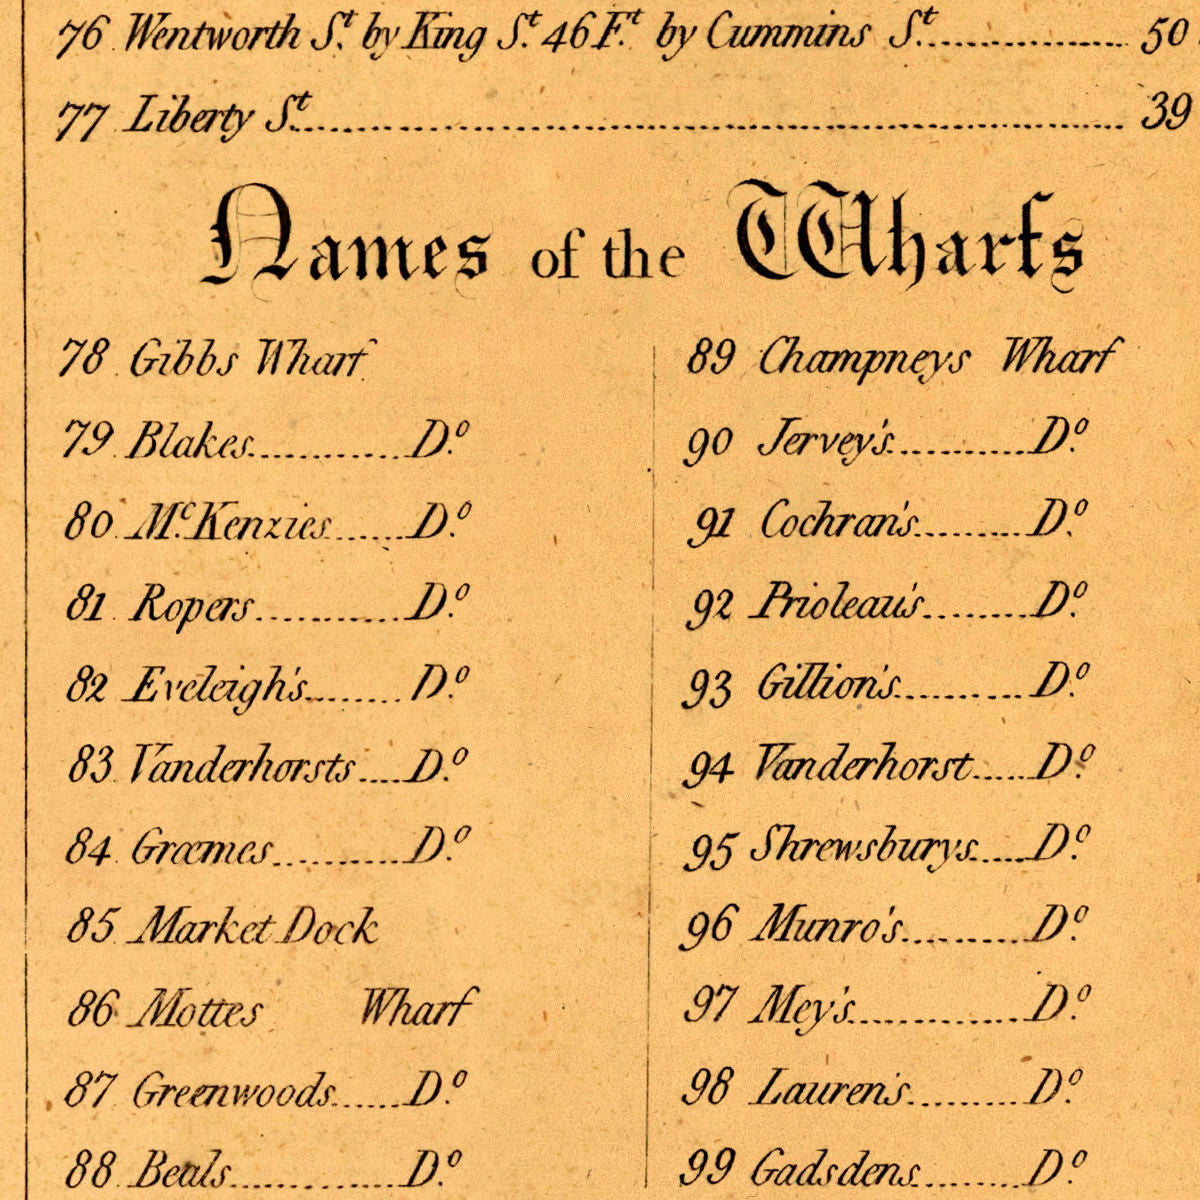 76 Wentworth St. by King St. 46 Ft. by Cummins St. 50
77 Liberty St. 39
Names of the Wharfs
78 Gibbs Wharf
79 Blakes Do.
80 Mc.Kenzies Do.
81 Ropers Do.
82 Eveleigh's Do.
83 Vanderhorsts Do.
84 Græmes Do.
85 Market Dock
86 Mottes Wharf
87 Greenwoods Do.
88 Beals Do.
89 Champneys Wharf
90 Jervey's Do.
91 Cochran's Do.
92 Prioleau's Do.
93 Gillion's Do.
94 Vanderhorst Do.
95 Shrewsburys Do.
96 Munro's Do.
97 Mey's Do.
98 Lauren's Do.
99 Gadsdens Do.